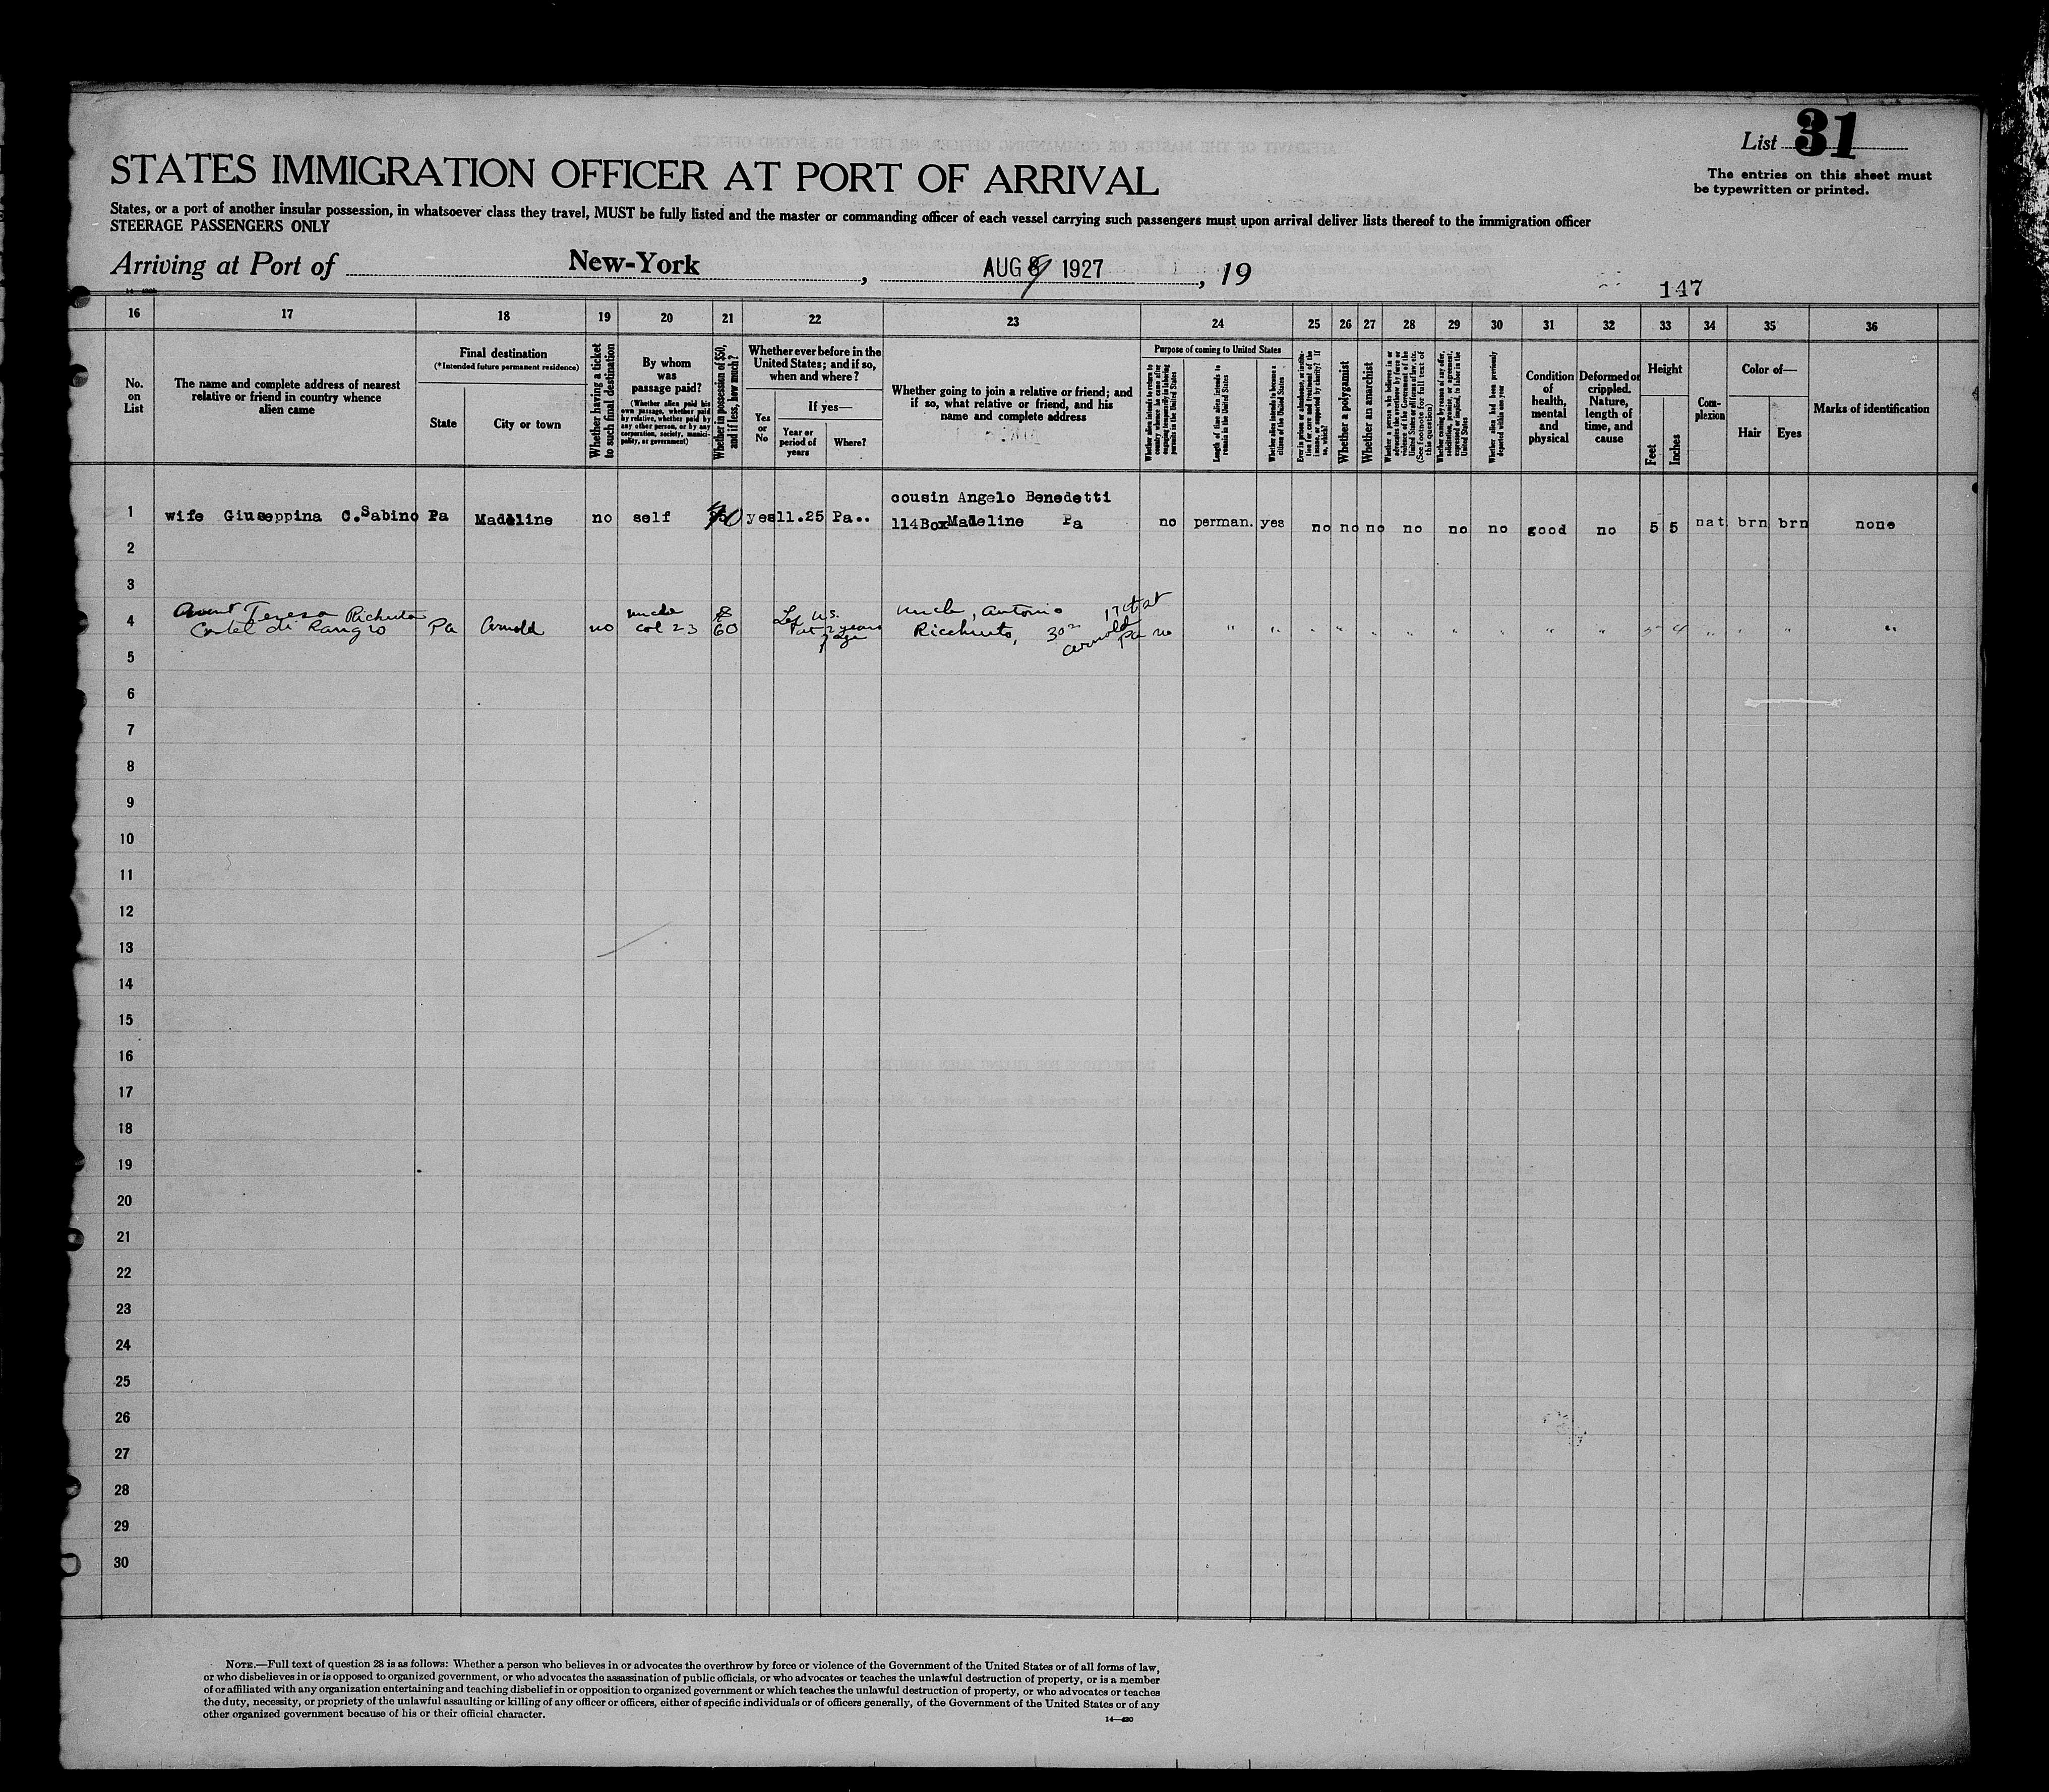 List 31
The entries on this sheet must
be typewritten or printed.
STATES IMMIGRATION OFFICER AT PORT OF ARRIVAL
States, or a port of another insular possession, in whatsoever class they travel, MUST be fully listed and the master or commanding officer of each vessel carrying such passengers must upon arrival deliver lists thereof to the immigration officer
STEERAGE PASSENGERS ONLY
Arriving at Port of New-York, AUG 9 1927, 19
147
16 17 18 19 20 21 22 23 24 25 26 27 28 29 30 31 32 33 34 35 36
No.
on
List
The name and complete address of nearest
relative or friend in country whence
alien came
Final destination
(*Intended future permanent residence)
State
City or town
Whether having a ticket
to such final destination
By whom
was
passage paid?
(Whether alien paid his
own passage, whether paid
by relative, whether paid by
any other person, or by any
corporation, society, munici-
pality, or government)
Whether in possession of $50,
and if less, how much?
Whether ever before in the
United States; and if so,
when and where?
Yes
or
No
If yes—
Year or
period of
years
Where?
Whether going to join a relative or friend; and
if so, what relative or friend, and his
name and complete address
Purpose of coming to United States
Whether alien intends to return to
country whence he came after
engaging temporarily in laboring
pursuits in the United States
Length of time alien intends to
remain in the United States
Whether alien intends to become a
citizen of the United States
Whether a polygamist
Whether an anarchist
Whether alien had been previously
deported within one year
Condition
of
health,
mental
and
physical
Deformed or
crippled.
Nature,
length of
time, and
cause
Height
Feet
Inches
Com-
plexion
Color of—
Hair
Eyes
Marks of identification
cousin Angelo Benedetti
1 wife Giuseppina C.Sabino Pa Madeline no self yes 11.25 Pa.. 114Box Madeline Pa no perman. yes no no no no no no good no 5 5 nat brn brn none
2
3
Aunt Teresa Richiuto uncle $ Left U.S. uncle, Antonio
4 Castel di Sangro Pa Arnold no col 23 60 at 2 years Ricchiuto, Arnold Pa no " " " " " " " " " " 5 4 " " " "
age
5
6
7
8
9
10
11
12
13
14
15
16
17
18
19
20
21
22
23
24
25
26
27
28
29
30
NOTE.—Full text of question 28 is as follows: Whether a person who believes in or advocates the overthrow by force or violence of the Government of the United States or of all forms of law,
or who disbelieves in or is opposed to organized government, or who advocates the assassination of public officials, or who advocates or teaches the unlawful destruction of property, or is a member
of or affiliated with any organization entertaining and teaching disbelief in or opposition to organized government or which teaches the unlawful destruction of property, or who advocates or teaches
the duty, necessity, or propriety of the unlawful assaulting or killing of any officer or officers, either of specific individuals or of officers generally, of the Government of the United States or of any
other organized government because of his or their official character.
14—430